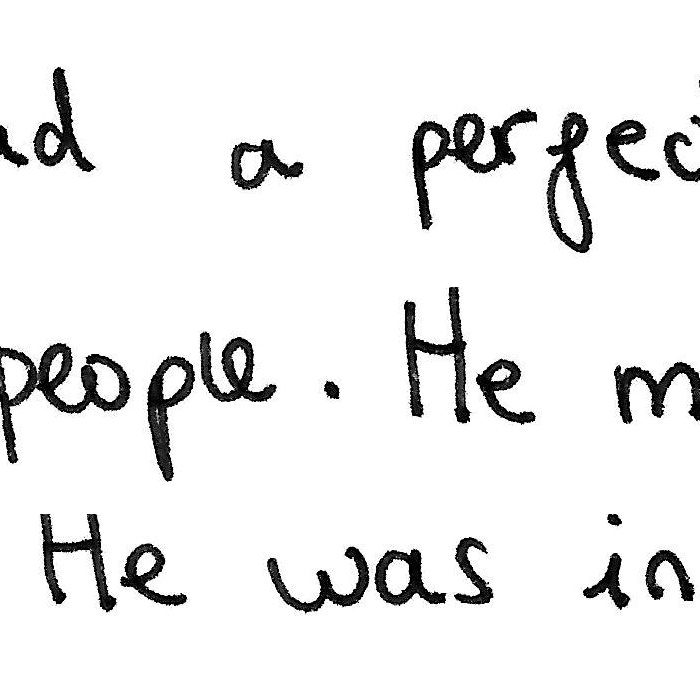 a perfec
people. He m
He was in